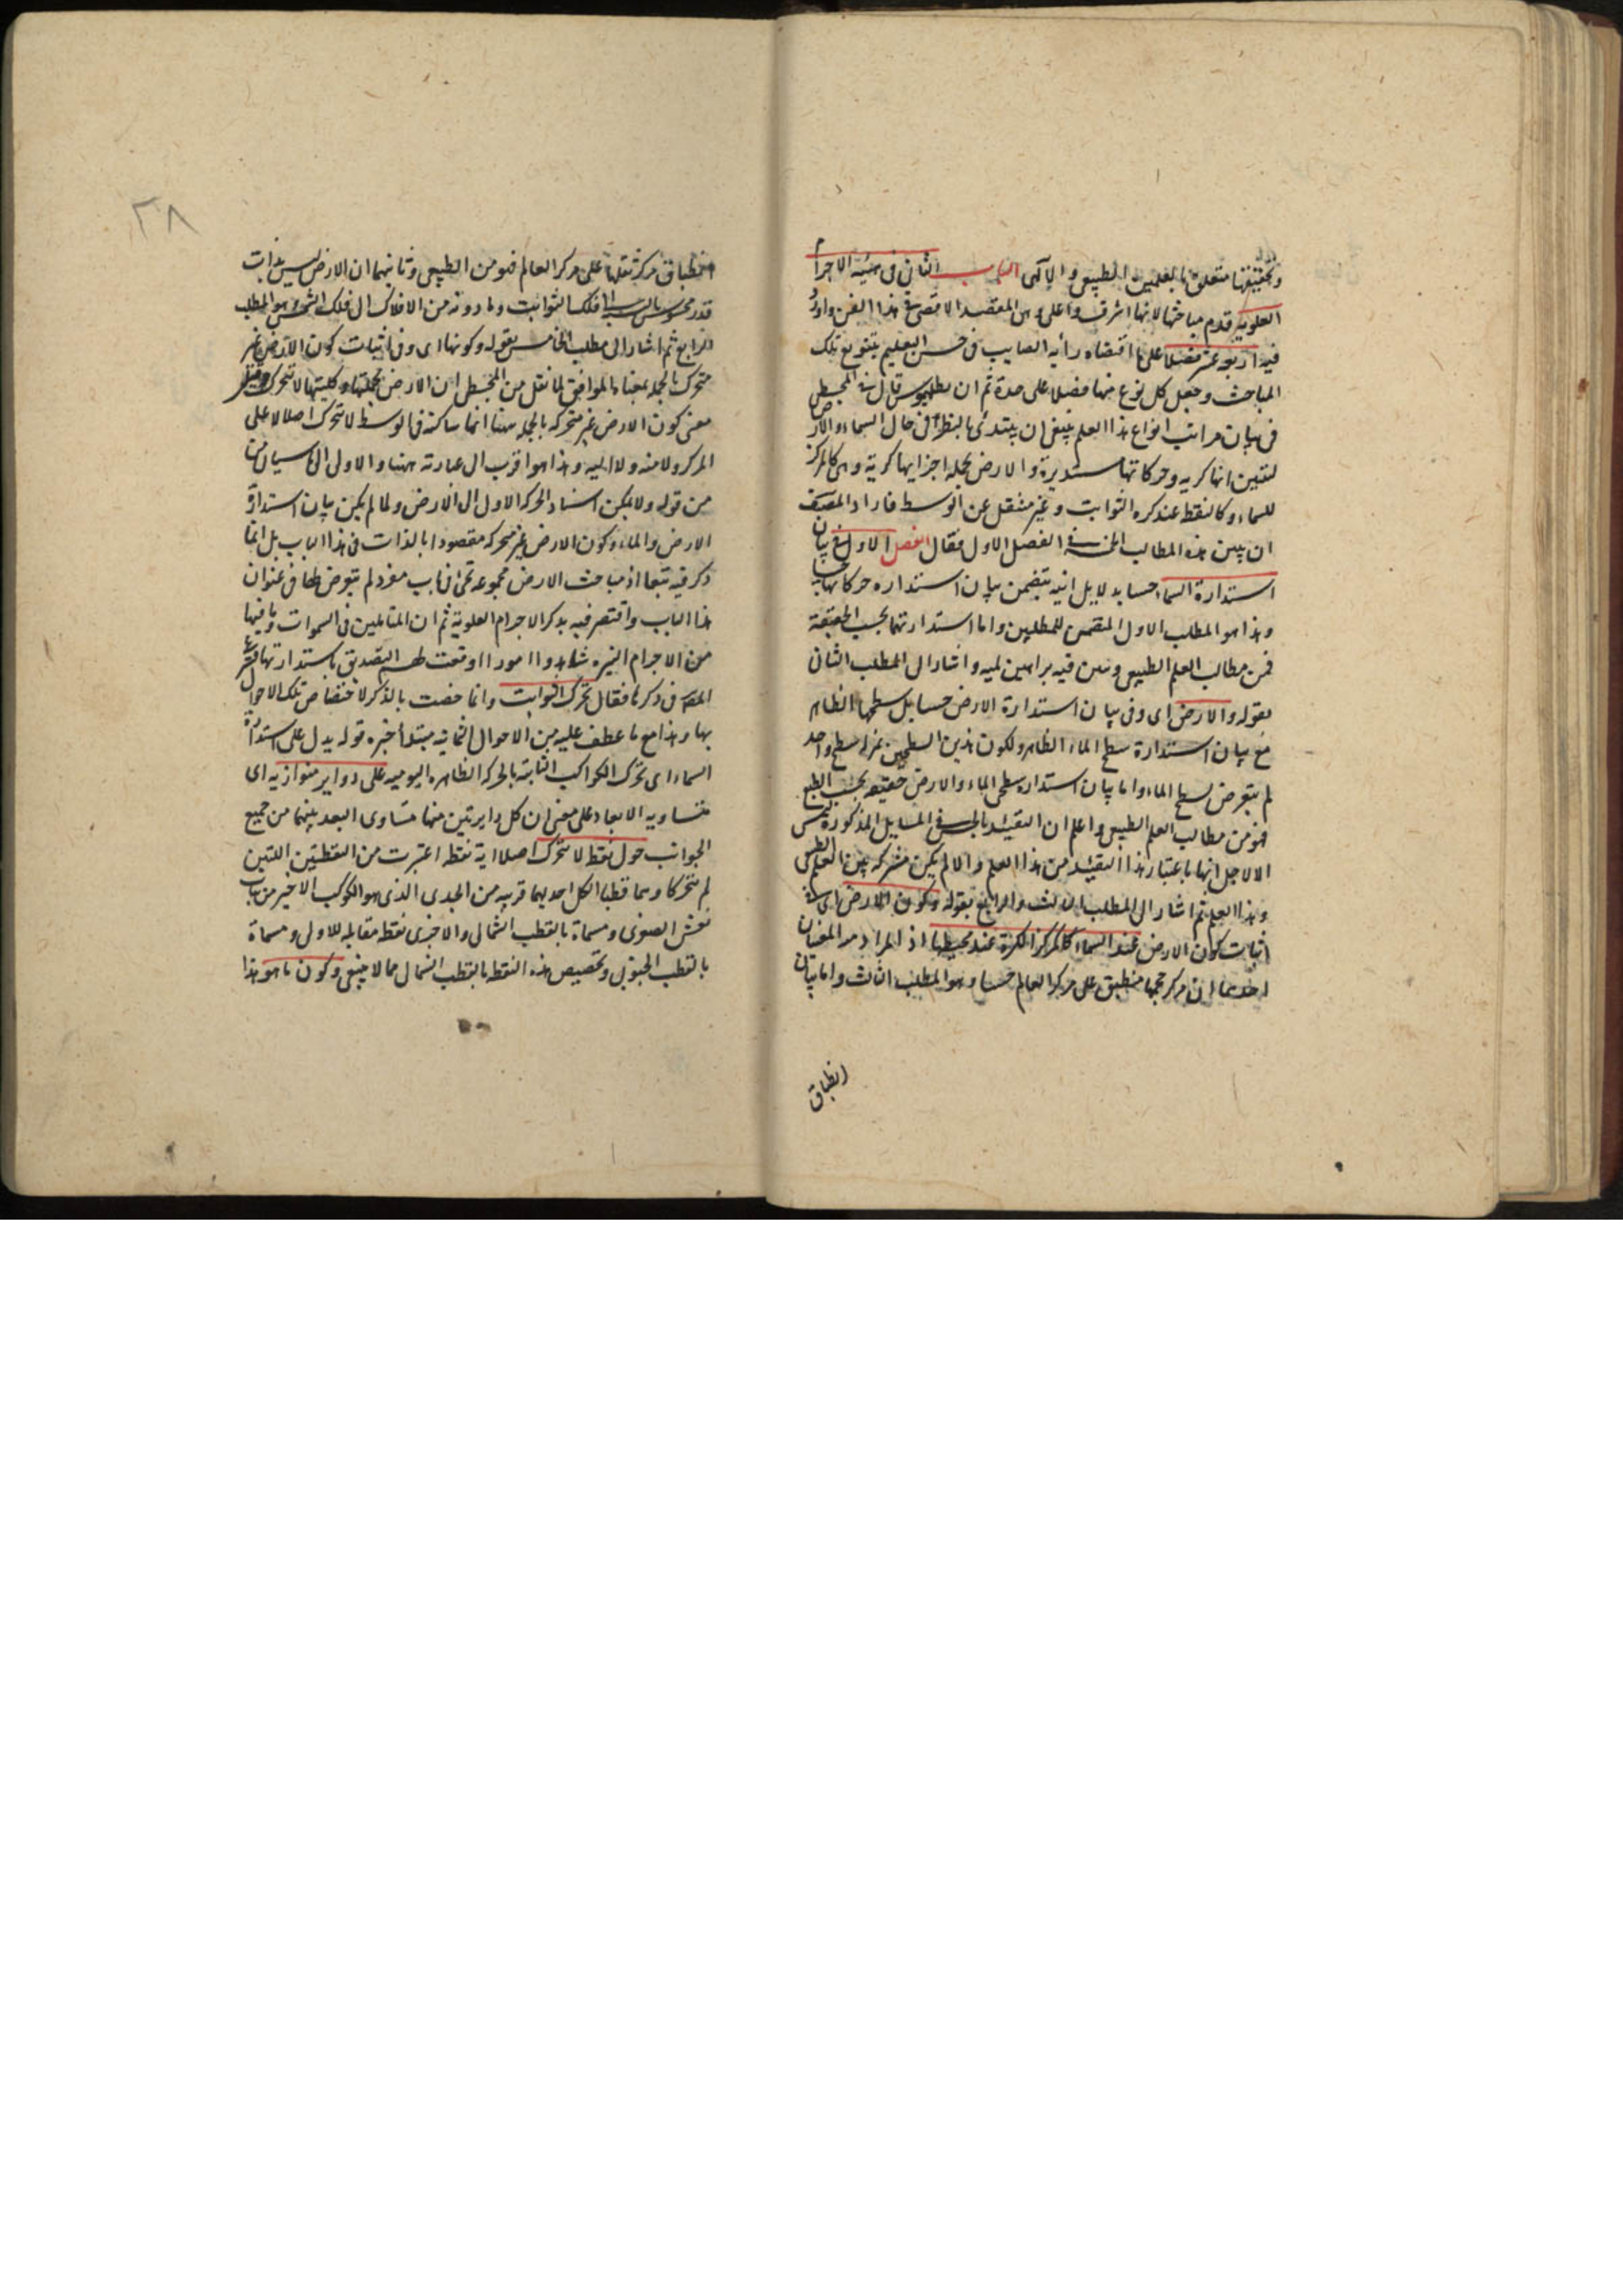 وتحقيقها متعلق بالعلمين الطبيعى والالهى الباب الثانى فى هيئة الاجرام
العلوية قدم مباحثها لانها اشرف واعلى وهى المقصد الاقصى فى هذا الفن واورد
فيه اربعة عشر فصلا على ما اقتضاه رأيه الصايب فى حسن التعليم بتنويع تلك
المباحث وجعل كل نوع منها فصلا على حدة ثم ان بطلميوس قال فى المجسطى
فى بيان مراتب انواع هذا العلم ينبغى ان يبتدئ بالنظر فى حال السماء والارض
لتبين انها كرية وحركاتها مستديرة والارض بجملة اجزايها كرية وهى كالمركز
للسماء وكالنقطة عند كرة الثوابت وغير منتقل عن الوسط فاراد المصنف
ان يبين هذه المطالب الخمسة فى الفصل الاول فقال الفصل الاول فى بيان
استدارة السماء حسا بدلايل انية تتضمن بيان استدارة حركاتها
وهذا هو المطلب الاول المتضمن للمطلبين واما استدارتهما بحسب الحقيقة
فمن مطالب العلم الطبيعى وتبين فيه براهين لمية واشار الى المطلب الثانى
بقوله والارض اى وفى بيان استدارة الارض حسا بل سطحها الظاهر
مع بيان استدارة سطح الماء الظاهر ولكون هذين السطحين بمنزلة سطح واحد
لم يتعرض لسطح الماء واما بيان استدارة سطحى الماء والارض حقيقة بحسب الطبع
فهو من مطالب العلم الطبيعى واعلم ان التقييد بالحس فى المسايل المذكورة ليس
الا لاجل انها باعتبار هذا التقييد من هذا العلم والا لم يكن مشتركة بين العلم الطبيعى
وهذا العلم ثم اشار الى المطلب الثالث والرابع بقوله وكون الارض اى فى
اثبات كون الارض عند السماء كالمركز للكرة عند محيطها اذ المراد منه المعنيان
احدهما ان مركز حجمها منطبق على مركز العالم حسا وهو المطلب الثالث واما بيان
انطباق
٢٨
انطباق مركز ثقلها على مركز العالم فهو من الطبيعى وثانيهما ان الارض ليس بذات
قدر محسوس بالنسبة الى فلك الثوابت وما دونه من الافلاك الى فلك الشمس وهو المطلب
الرابع ثم اشار الى مطلب الخامس بقوله وكونها اى وفى اثبات كون الارض غير
متحركة بالجملة بمعناه الموافق لما نقل من المجسطى ان الارض بجملتها وكليتها لا تتحرك وقيل
معنى كون الارض غير متحركة بالجملة ههنا انها ساكنة فى الوسط لا تتحرك اصلا لا على
المركز ولا منه ولا اليه وهذا هو اقرب الى عبارته ههنا والاول الى ما سياتى
من قوله ولا يمكن اسناد الحركة الاولى الى الارض ولما لم يكن بيان استدارة
الارض والماء وكون الارض غير متحركة مقصودا بالذات فى هذا الباب بل انما
ذكر فيه تبعا اذ مباحث الارض مجموعة فى باب مفرد لم يتعرض لها فى عنوان
هذا الباب واقتصر فيه بذكر الاجرام العلوية ثم ان المتاملين فى السموات وما فيها
من الاجرام النيرة شاهدوا امورا اوقعت لهم التصديق باستدارتها فشرع
المصنف فى ذكرها فقال تحرك الثوابت وانما خصت بالذكر لاختصاص تلك الاحوال
بها وهذا مع ما عطف عليه من الاحوال الثمانية مبتدأ خبره قوله يدل على استدارة
السماء اى تحرك الكواكب الثابتة بالحركة الظاهرة اليومية على دواير متوازية اى
متساوية الابعاد على معنى ان كل دايرتين منها متساوى البعد بينهما من جميع
الجوانب حول نقطة لا تتحرك اصلا اية نقطة اعتبرت من النقطتين اللتين
لم تتحركا وهما قطبا الكل احديهما قريبة من الجدى الذى هو الكوكب الاخير من بنات
نعش الصغرى ومسماة بالقطب الشمالى والاخرى نقطة مقابلة للاولى ومسماة
بالقطب الجنوبى وتخصيص هذه النقطة بالقطب الشمالى مما لا ينبغى وكون ما هو هذا